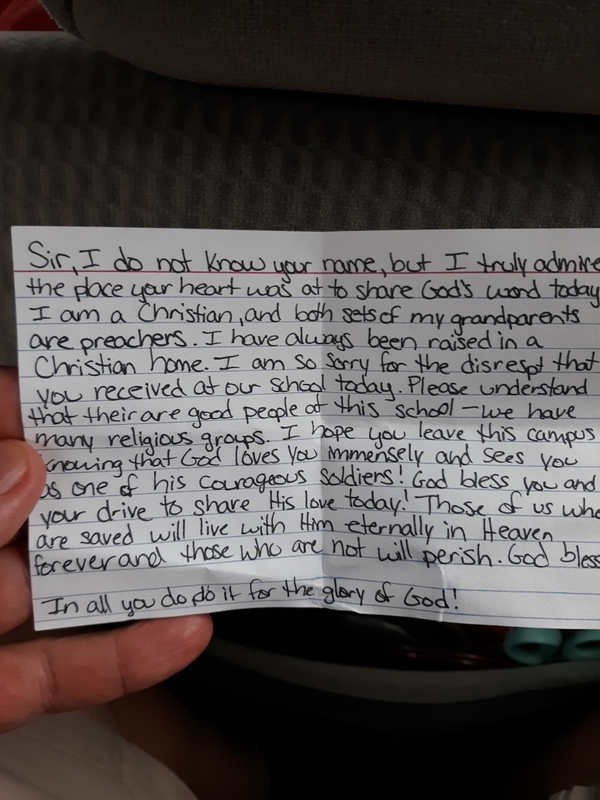 Sir, I do not know your name, but I truly admire
the place your heart was at to share God's word today
I am a Christian, and both sets of my grandparents
are preachers. I have always been raised in a
Christian home. I am so sorry for the disrespt that
you received at our school today. Please understand
that their are good people at this school - we have
many religious groups. I hope you leave this campus
knowing that God loves you immensely and sees you
as one of his courageous soldiers! God bless you and
your drive to share His love today! Those of us who
are saved will live with Him eternally in Heaven
forever and those who are not will perish. God bless
In all you do do it for the glory of God!